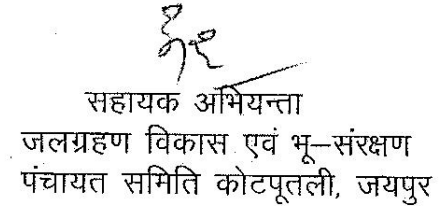 सहायक अभियन्ता
जलग्रहण विकास एवं भू–संरक्षण
पंचायत समिति कोटपूतली, जयपुर